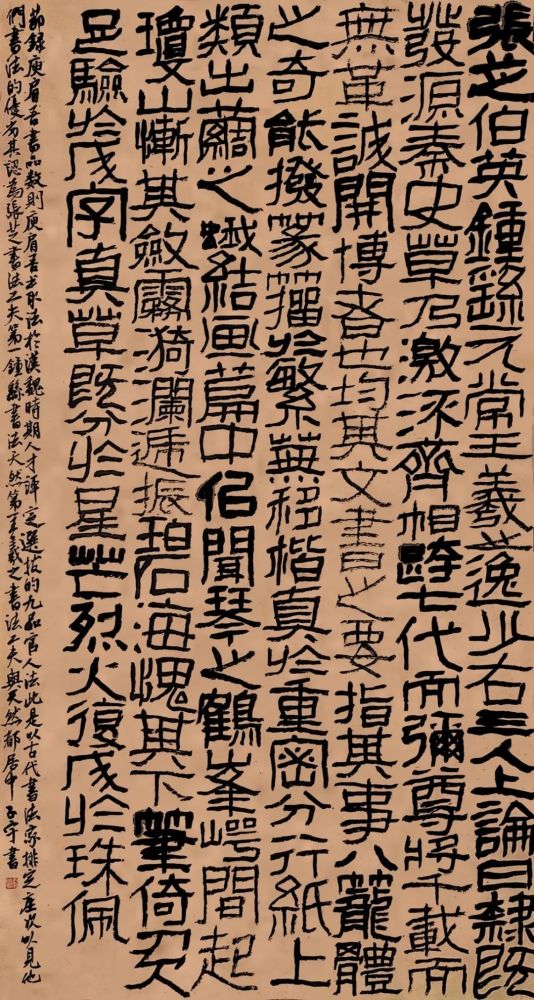 張芝伯英鍾繇元常王羲之逸少右三人上論曰隸既
發源秦史草乃激流齊相跨七代而彌尊將千載而
無革誠開博者也均其文書之要指其事八籠體
之奇能撥篆籀於繁蕪移楷真於重密分行紙上
類出繭之蛾結畫篇中似聞琴之鶴峯崿間起
瓊山慚其斂霧漪瀾遞振碧海愧其下筆倚刃
足驗於成字真草既分於星芒烈火復成於珠佩
節錄庾肩吾書品數則庾肩吾取法於漢魏時期人才評定選拔的九品官人法此是以古代書法家排定座次以見他
們書法的優劣其認為張芝書法工夫第一鍾繇書法天然第一王羲之書法工夫與天然都居中 子守書